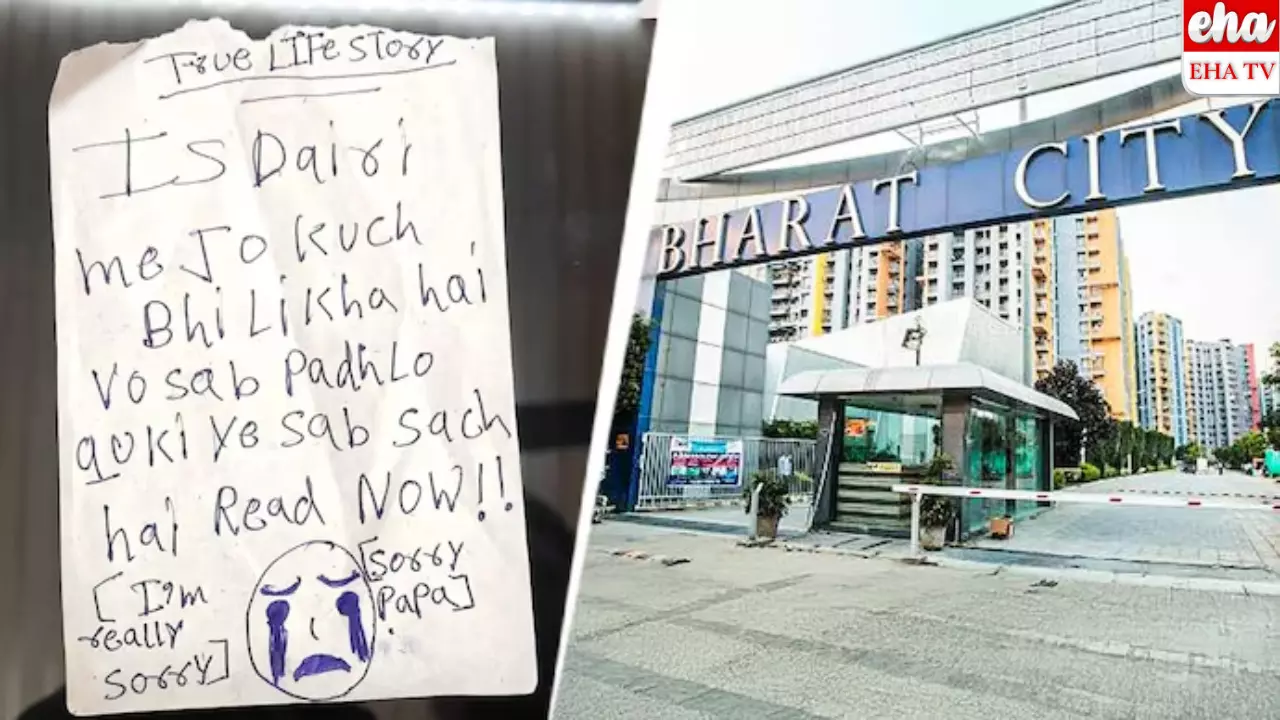 True LIfe story
Is Dairi
me Jo kuch
Bhi Likha hai
Vo sab Padh Lo
quki ye sab sach
hai Read NOW!!
[I'm
really
sorry]
[sorry
Papa]
BHARAT CITY
eha
EHA TV